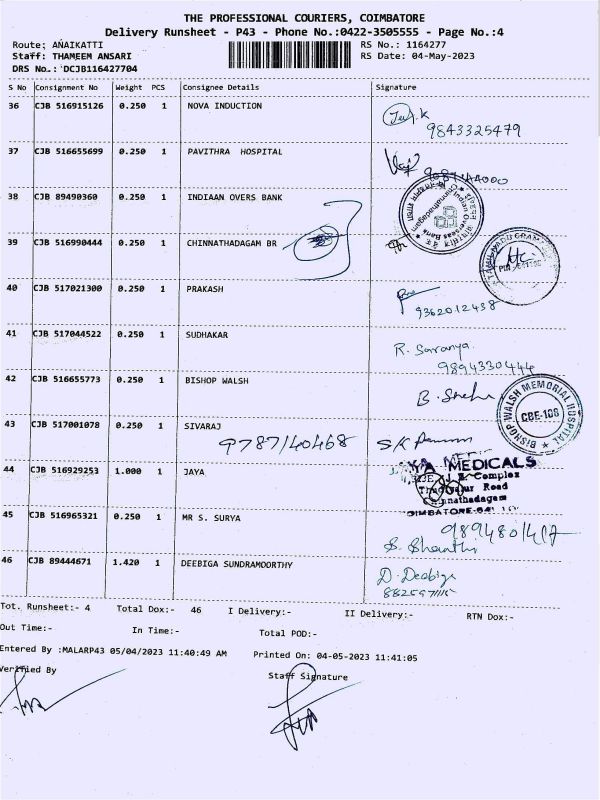 THE PROFESSIONAL COURIERS, COIMBATORE
Delivery Runsheet - P43 - Phone No.:0422-3505555 - Page No.:4
Route: ANAIKATTI RS No.: 1164277
Staff: THAMEEM ANSARI RS Date: 04-May-2023
DRS No.: DCJB116427704
S No Consignment No Weight PCS Consignee Details Signature
36 CJB 516915126 0.250 1 NOVA INDUCTION
9843325479
37 CJB 516655699 0.250 1 PAVITHRA HOSPITAL
38 CJB 89490360 0.250 1 INDIAAN OVERS BANK
39 CJB 516990444 0.250 1 CHINNATHADAGAM BR
40 CJB 517021300 0.250 1 PRAKASH
9362012438
41 CJB 517044522 0.250 1 SUDHAKAR
R. Saranya
9894330444
42 CJB 516655773 0.250 1 BISHOP WALSH
BISHOP WALSH MEMORIAL HOSPITAL
CBE-108
43 CJB 517001078 0.250 1 SIVARAJ
9787140468
44 CJB 516929253 1.000 1 JAYA
MEDICALS
Complex
Road
45 CJB 516965321 0.250 1 MR S. SURYA
S. Shanthi
46 CJB 89444671 1.420 1 DEEBIGA SUNDRAMOORTHY
D. Deebiga
Tot. Runsheet:- 4 Total Dox:- 46 I Delivery:- II Delivery:- RTN Dox:-
Out Time:- In Time:- Total POD:-
Entered By :MALARP43 05/04/2023 11:40:49 AM Printed On: 04-05-2023 11:41:05
Verified By Staff Signature